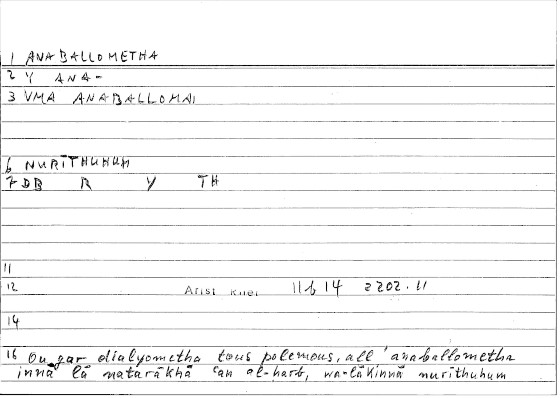 1 ANABALLOMETHA
2 Y ANA-
3 VMA ANABALLOMAI
6 NURĪTHUHUM
7 DB R Y TH
11
12 Arist Rhet 11b14 2202.11
14
16 Ou gar dialyometha tous polemous, all'anaballometha
innā lā natarākhā ʿan al-harb, wa-lākinnā nurīthuhum